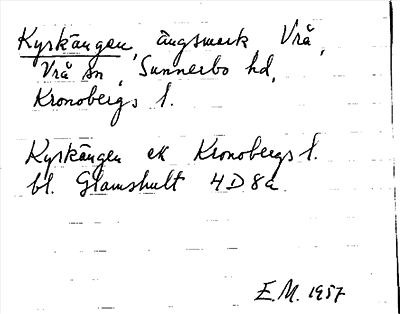 Kyrkängen, ängsmark Vrå,
Vrå sn, Sunnerbo hd,
Kronobergs l.
Kyrkängen ek Kronobergs l.
bl. Glamshult 4D8a
E.M. 1957